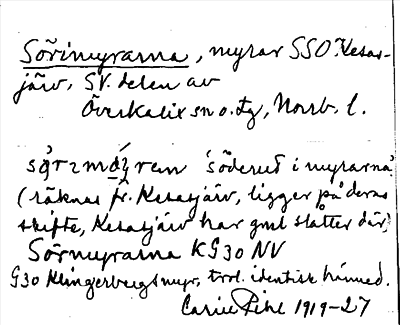 Sörimyrarna, myrar SSO. Kesas-
järv, SV. delen av
Överkalix sn o. tg, Norrb. l.
'söderut i myrarna'
(räknas fr. Kesasjärv, ligger på deras
skifte, Kesasjärv har gml slåtter där)
Sörmyrarna KG30 NV
G30 Klingerbergsmyr, trol. identisk härmed.
Carin Pihl 1919-27